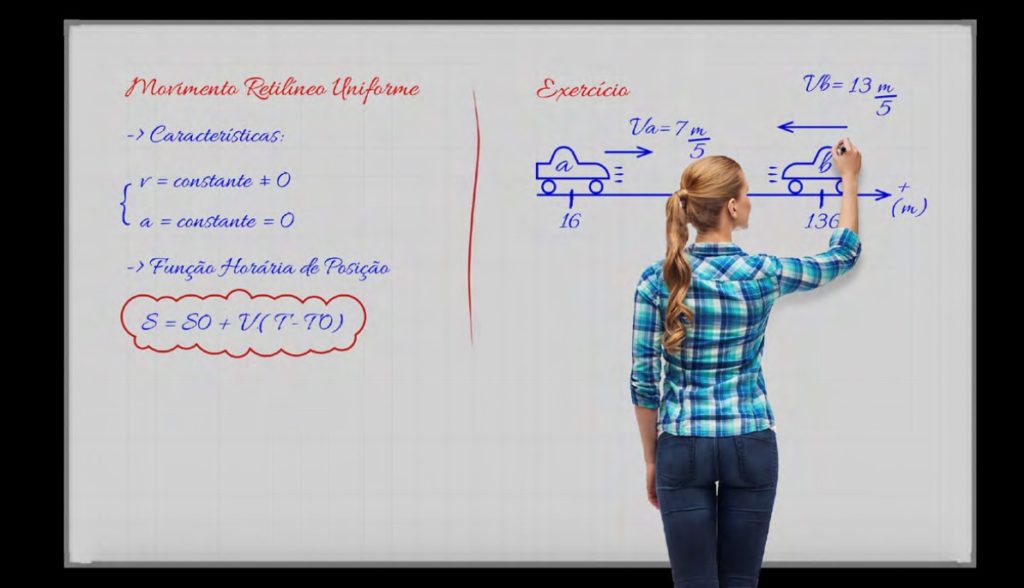 Movimento Retilíneo Uniforme
-> Características:
v = constante ≠ 0
a = constante = 0
-> Função Horária de Posição
S = SO + V( T - TO)
Exercício
Va = 7 m/5
Vb = 13 m/5
a
b
+
(m)
16
136